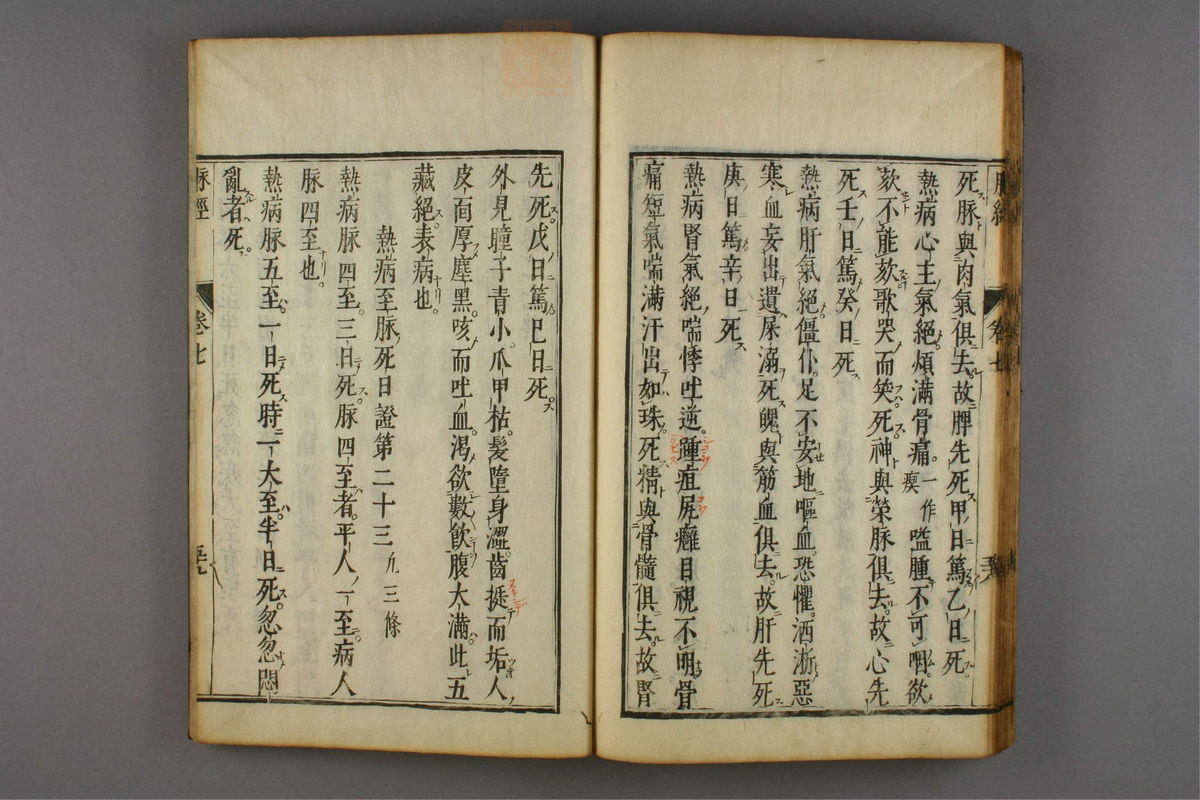 死脉與肉氣俱去故脾先死甲日篤乙日死
熱病心主氣絕煩滿骨痛一作瘈嗌腫不可咽欲
欬不能欬歌哭而笑死神與榮脉俱去故心先
死壬日篤癸日死
熱病肝氣絕僵仆足不安地嘔血恐懼洒淅惡
寒血妄出遺屎溺死魄與筋血俱去故肝先死
庚日篤辛日死
熱病腎氣絕喘悸吐逆腫疽尻癰目視不明骨
痛短氣喘滿汗出如珠死精與骨髓俱去故腎
先死戊日篤巳日死
外見瞳子青小爪甲枯髮墮身澀齒挺而垢人
皮面厚塵黑咳而吐血渴欲數飲腹大滿此五
藏絕表病也
熱病至脉死日證第二十三凡三條
熱病脉四至三日死脉四至者平人一至病人
脉四至也
熱病脉五至一日死時一大至半日死忽忽悶
亂者死
脉經
卷七